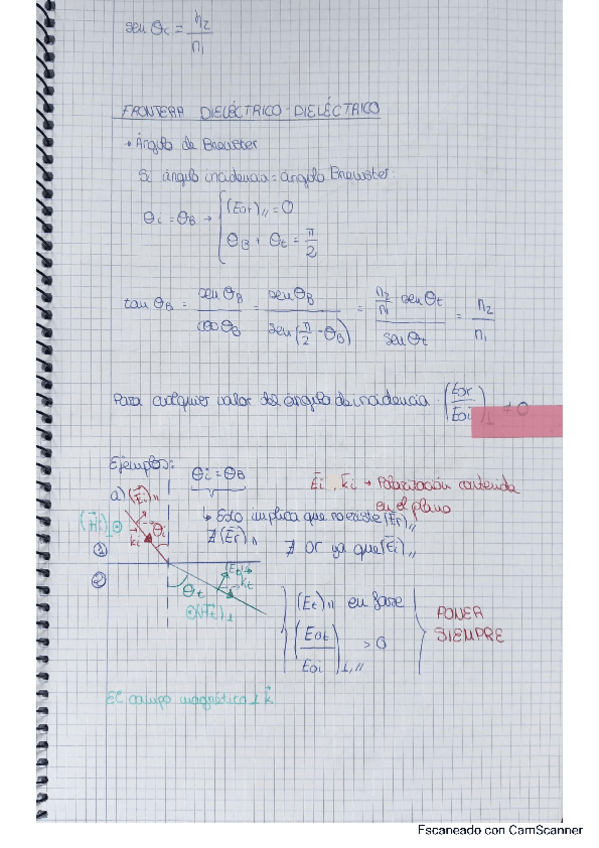 sen θc = n2/n1
FRONTERA DIELÉCTRICO-DIELÉCTRICO
→ Ángulo de Brewster
Si ángulo incidencia = ángulo Brewster:
θi = θB → { (Eor)// = 0
θB + θt = π/2
tan θB = sen θB / cos θB = sen θB / sen(π/2 - θB) = n2/n1 sen θt / sen θt = n2/n1
Para cualquier valor del ángulo de incidencia: (Eor/Eoi)⊥ ≠ 0
Ejemplos: θi = θB
Ēi, k̄i → Polarización contenida
en el plano
a) (Ēi)//
↳ Esto implica que no existe (Ēr)//
(H̄i)⊥ ⊙
k̄i
θi
∄ (Ēr)//
∄ θr ya que (Ēi)//
①
②
θt
(Ēt)//
k̄t
⊙(H̄t)⊥
(Et)// en fase
(Eot/Eoi)⊥,// > 0
PONER
SIEMPRE
El campo magnético ⊥ k̄
Escaneado con CamScanner